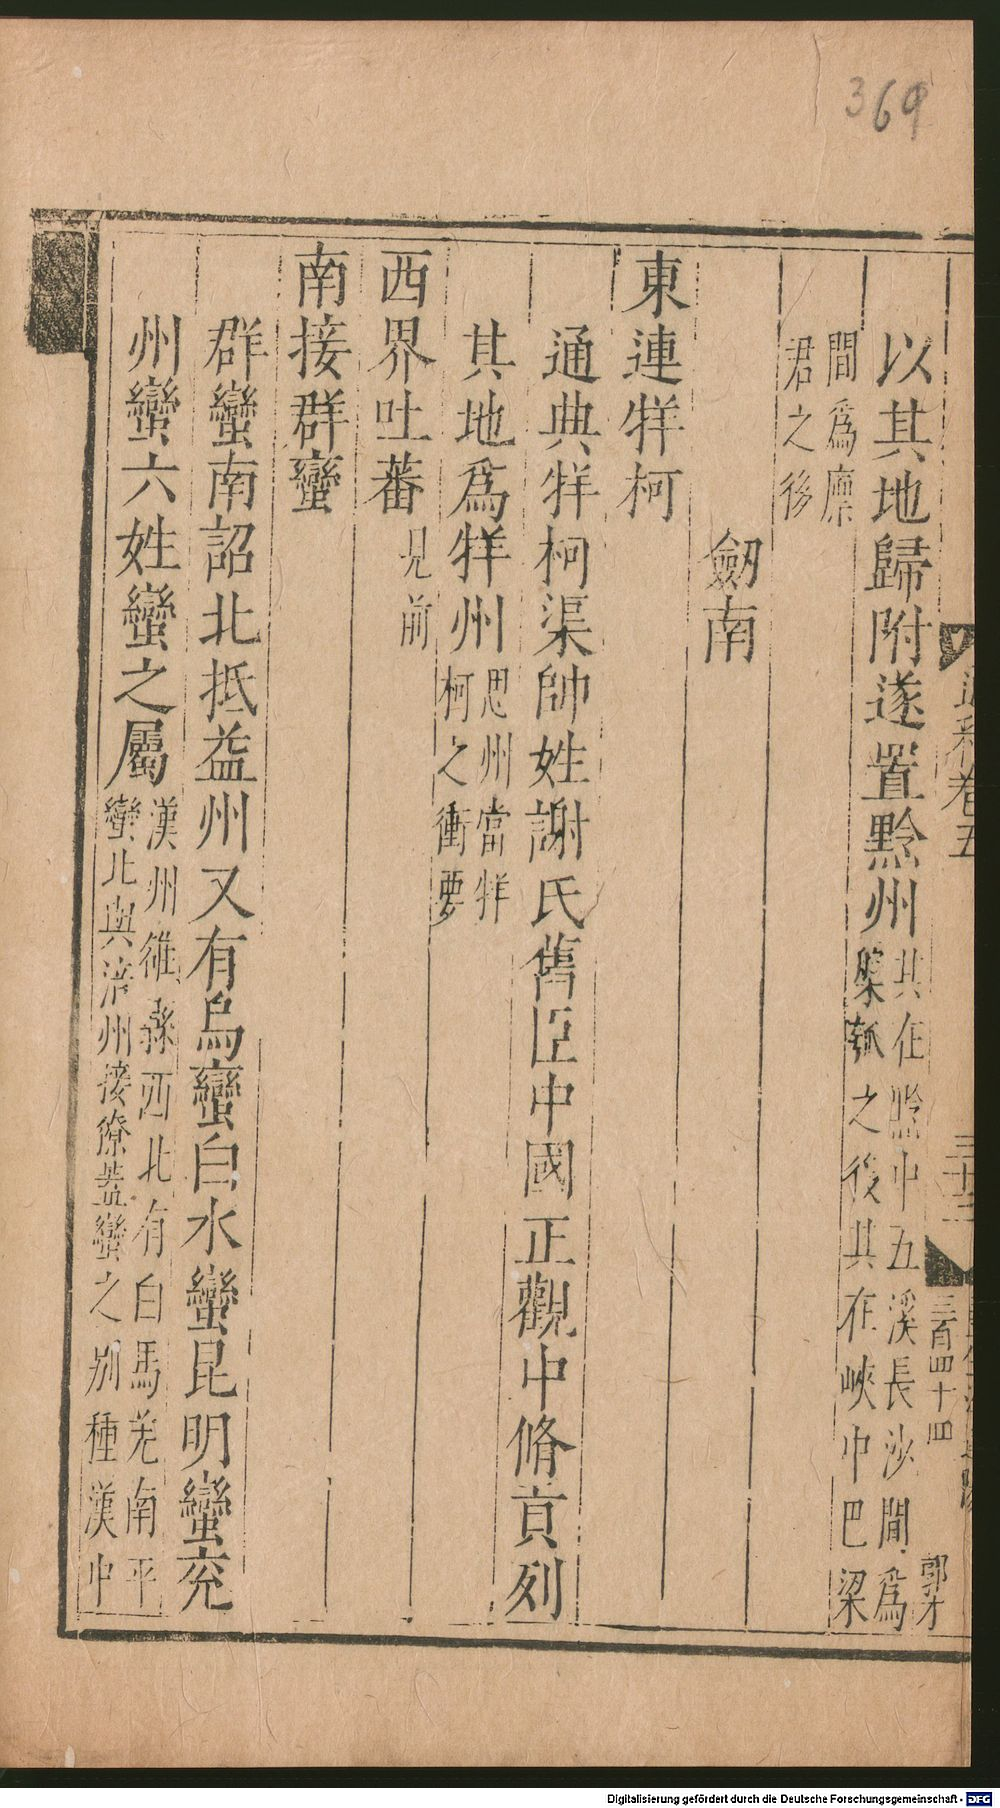 369
以其地歸附遂置黔州
其在黔中五溪長沙間爲
槃瓠之後其在峽中巴梁
間爲廪
君之後
劒南
東連牂柯
通典牂柯渠帥姓謝氏舊臣中國正觀中脩貢列
其地爲牂州
思州當牂
柯之衝要
西界吐蕃
見前
南接群蠻
群蠻南詔北抵益州又有烏蠻白水蠻昆明蠻充
州蠻六姓蠻之屬
漢州徼外西北有白馬羌南平
蠻北與涪州接僚蓋蠻之别種漢中
卷五
三十二
三百四十四
郭才
Digitalisierung gefördert durch die Deutsche Forschungsgemeinschaft - DFG